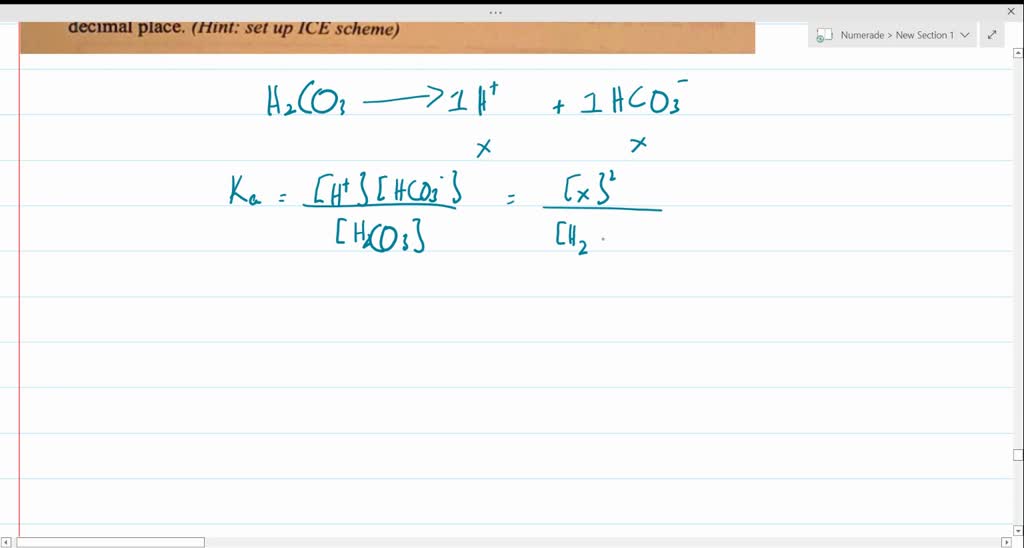 decimal place. (Hint: set up ICE scheme)
Numerade > New Section 1
H₂CO₃ ⟶ 1 H⁺ + 1 HCO₃⁻
x x
Ka = [H⁺][HCO₃⁻] / [H₂CO₃] = [x]² / [H₂